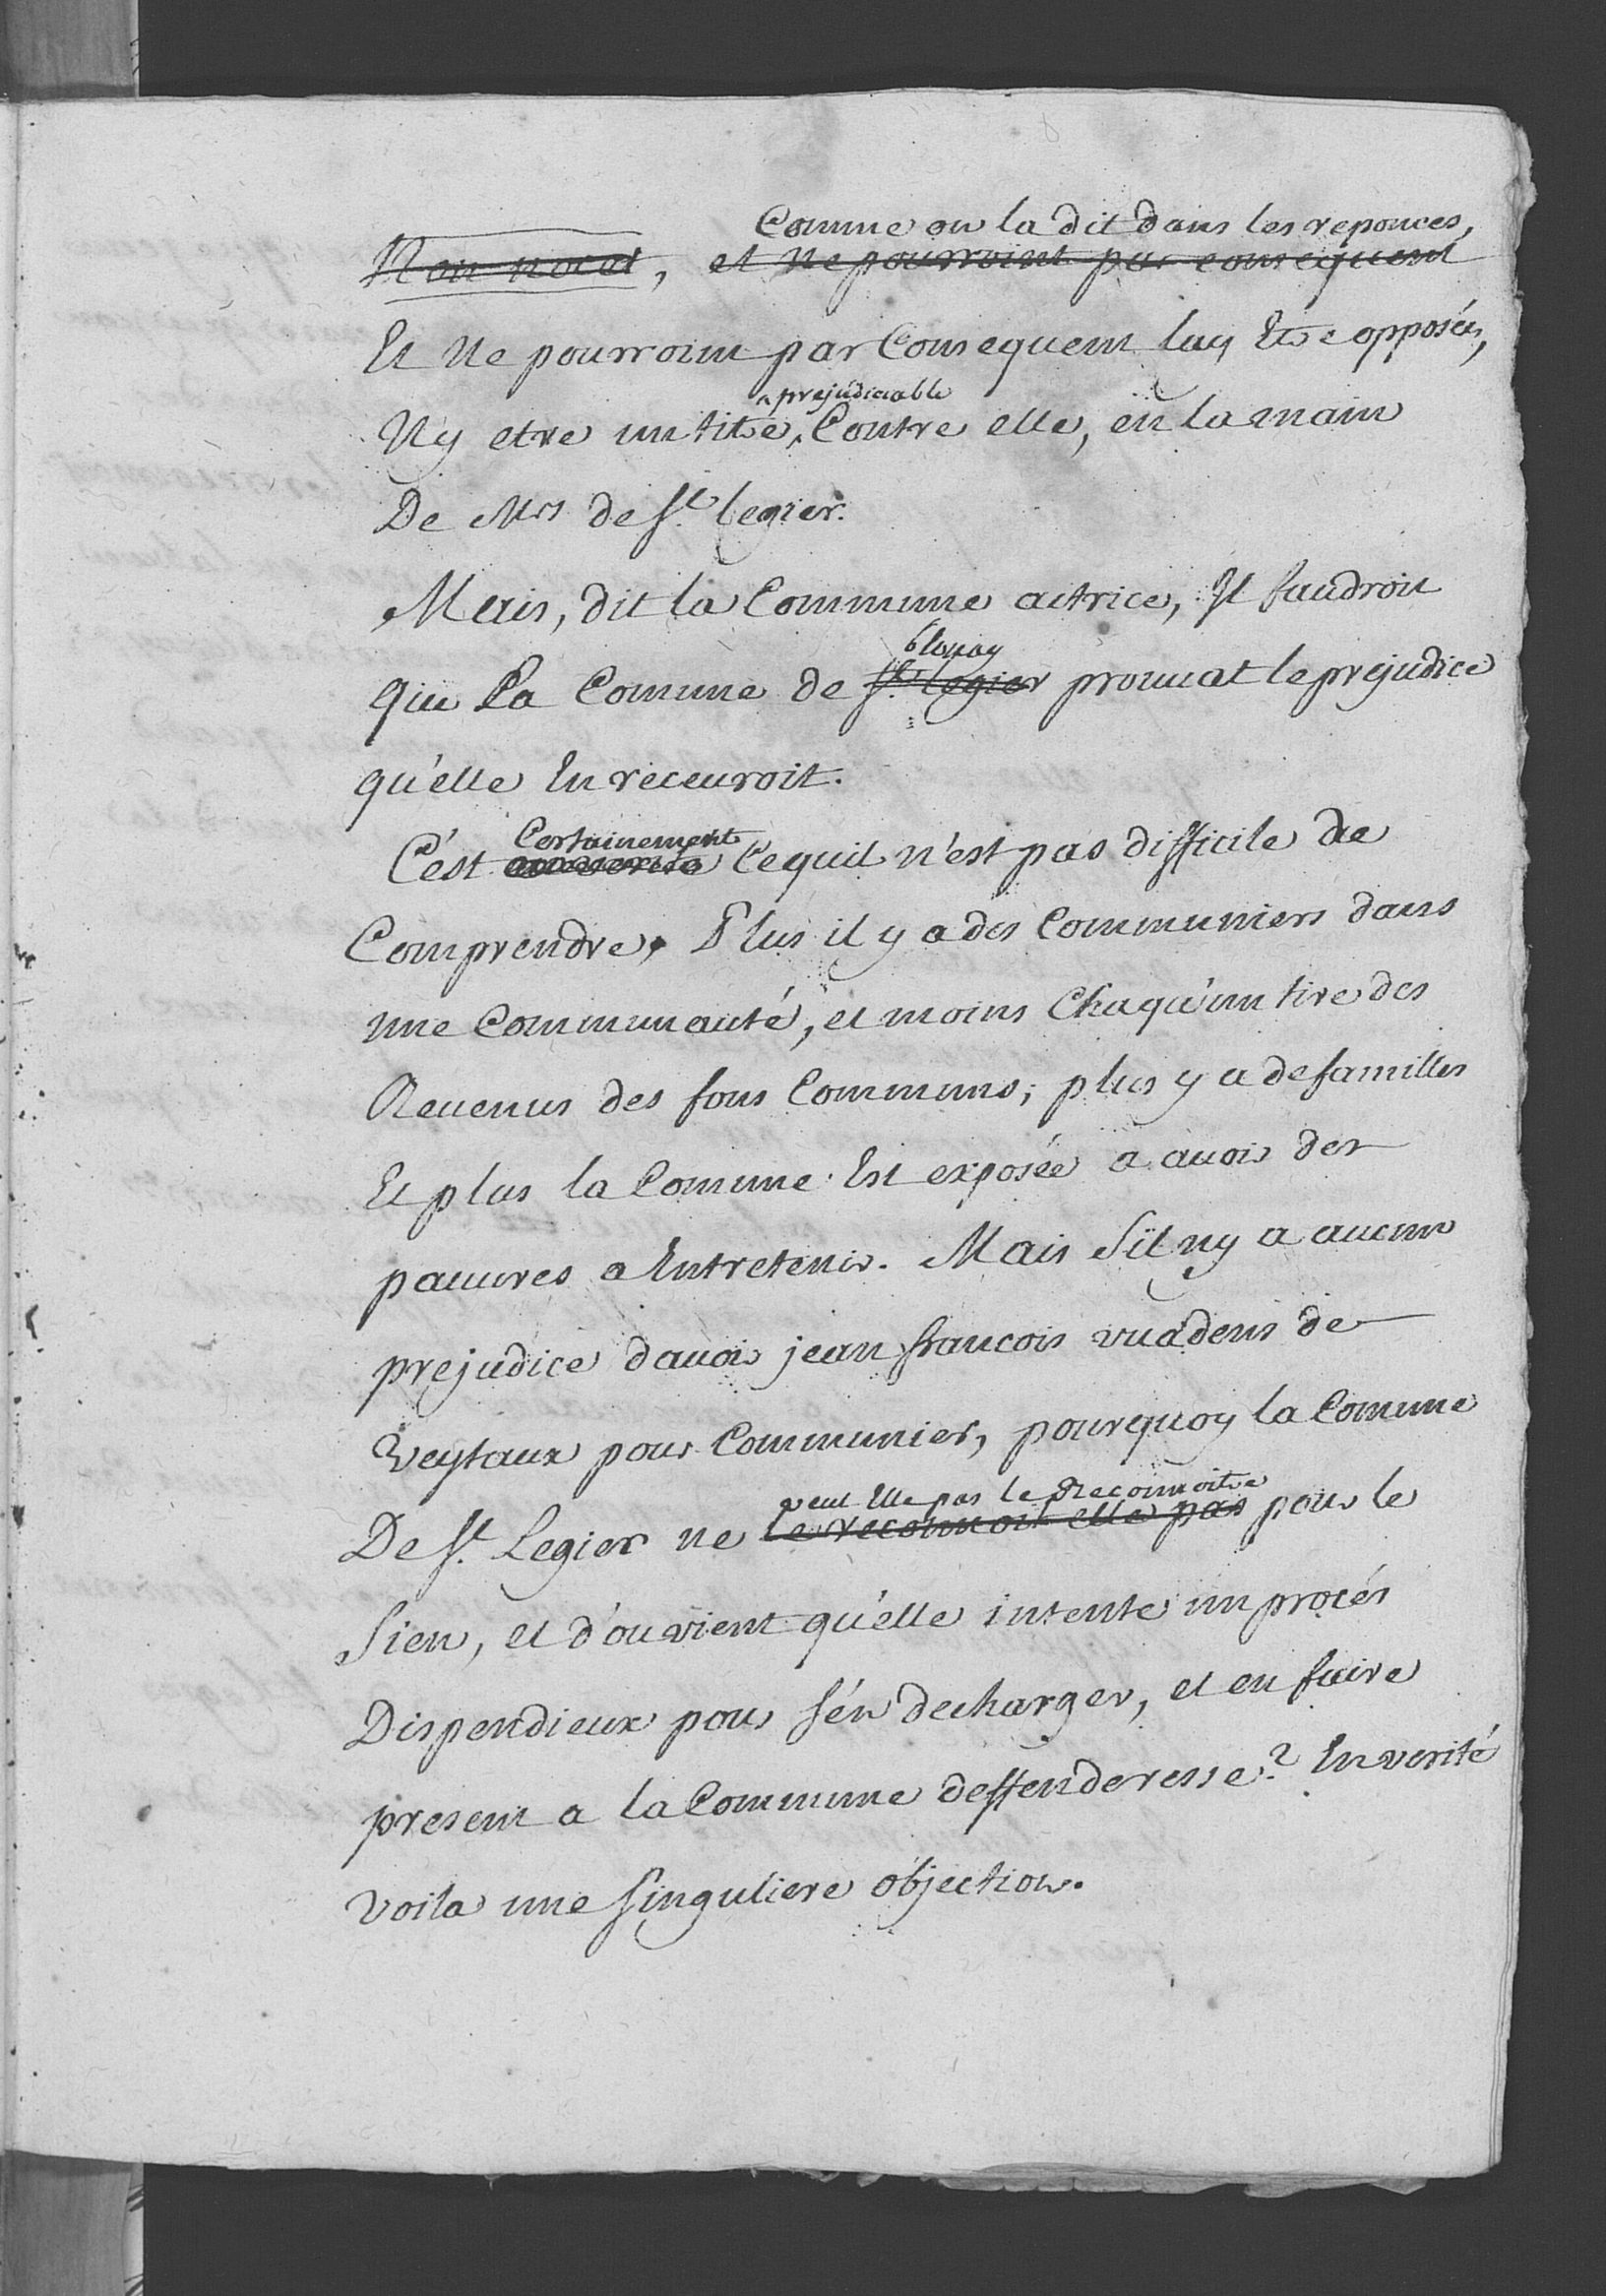 Comme on la dit dans les reponces,
Non nocet, et ne pourroint par consequent
Et Ne pourroint par Consequent luy Etre opposés,
prejudiciable
Ny etre un titre, Contre elle, en la main
De Mrs de St. legier.
Mais, dit la Commune actrice, Il faudroit
blonay
que La Comune de St. legier prouuat le prejudice
qu'elle En receuroit.
Certainement
C'est Ce quil n'est pas difficile de
Comprendre, Plus il y a des Communiers dans
une Communauté, et moins Chaqu'un tire des
Reuenus des fons Communs; plus y a de familles
Et plus la Comune Est exposée a auoir des
pauures a Entretenir. Mais S'il ny a aucun
prejudice dauoir jean francois vuadens de
Veytaux pour Communier, pourquoy la Comune
veut Elle pas le Reconnoitre
De St. Legier ne le reconnoit elle pas pour le
Sien, et d'ou vient qu'elle intente un procés
Dispendieux pour s'en decharger, et en faire
present a la Commune deffenderesse? En verité
voila une singuliere objection.